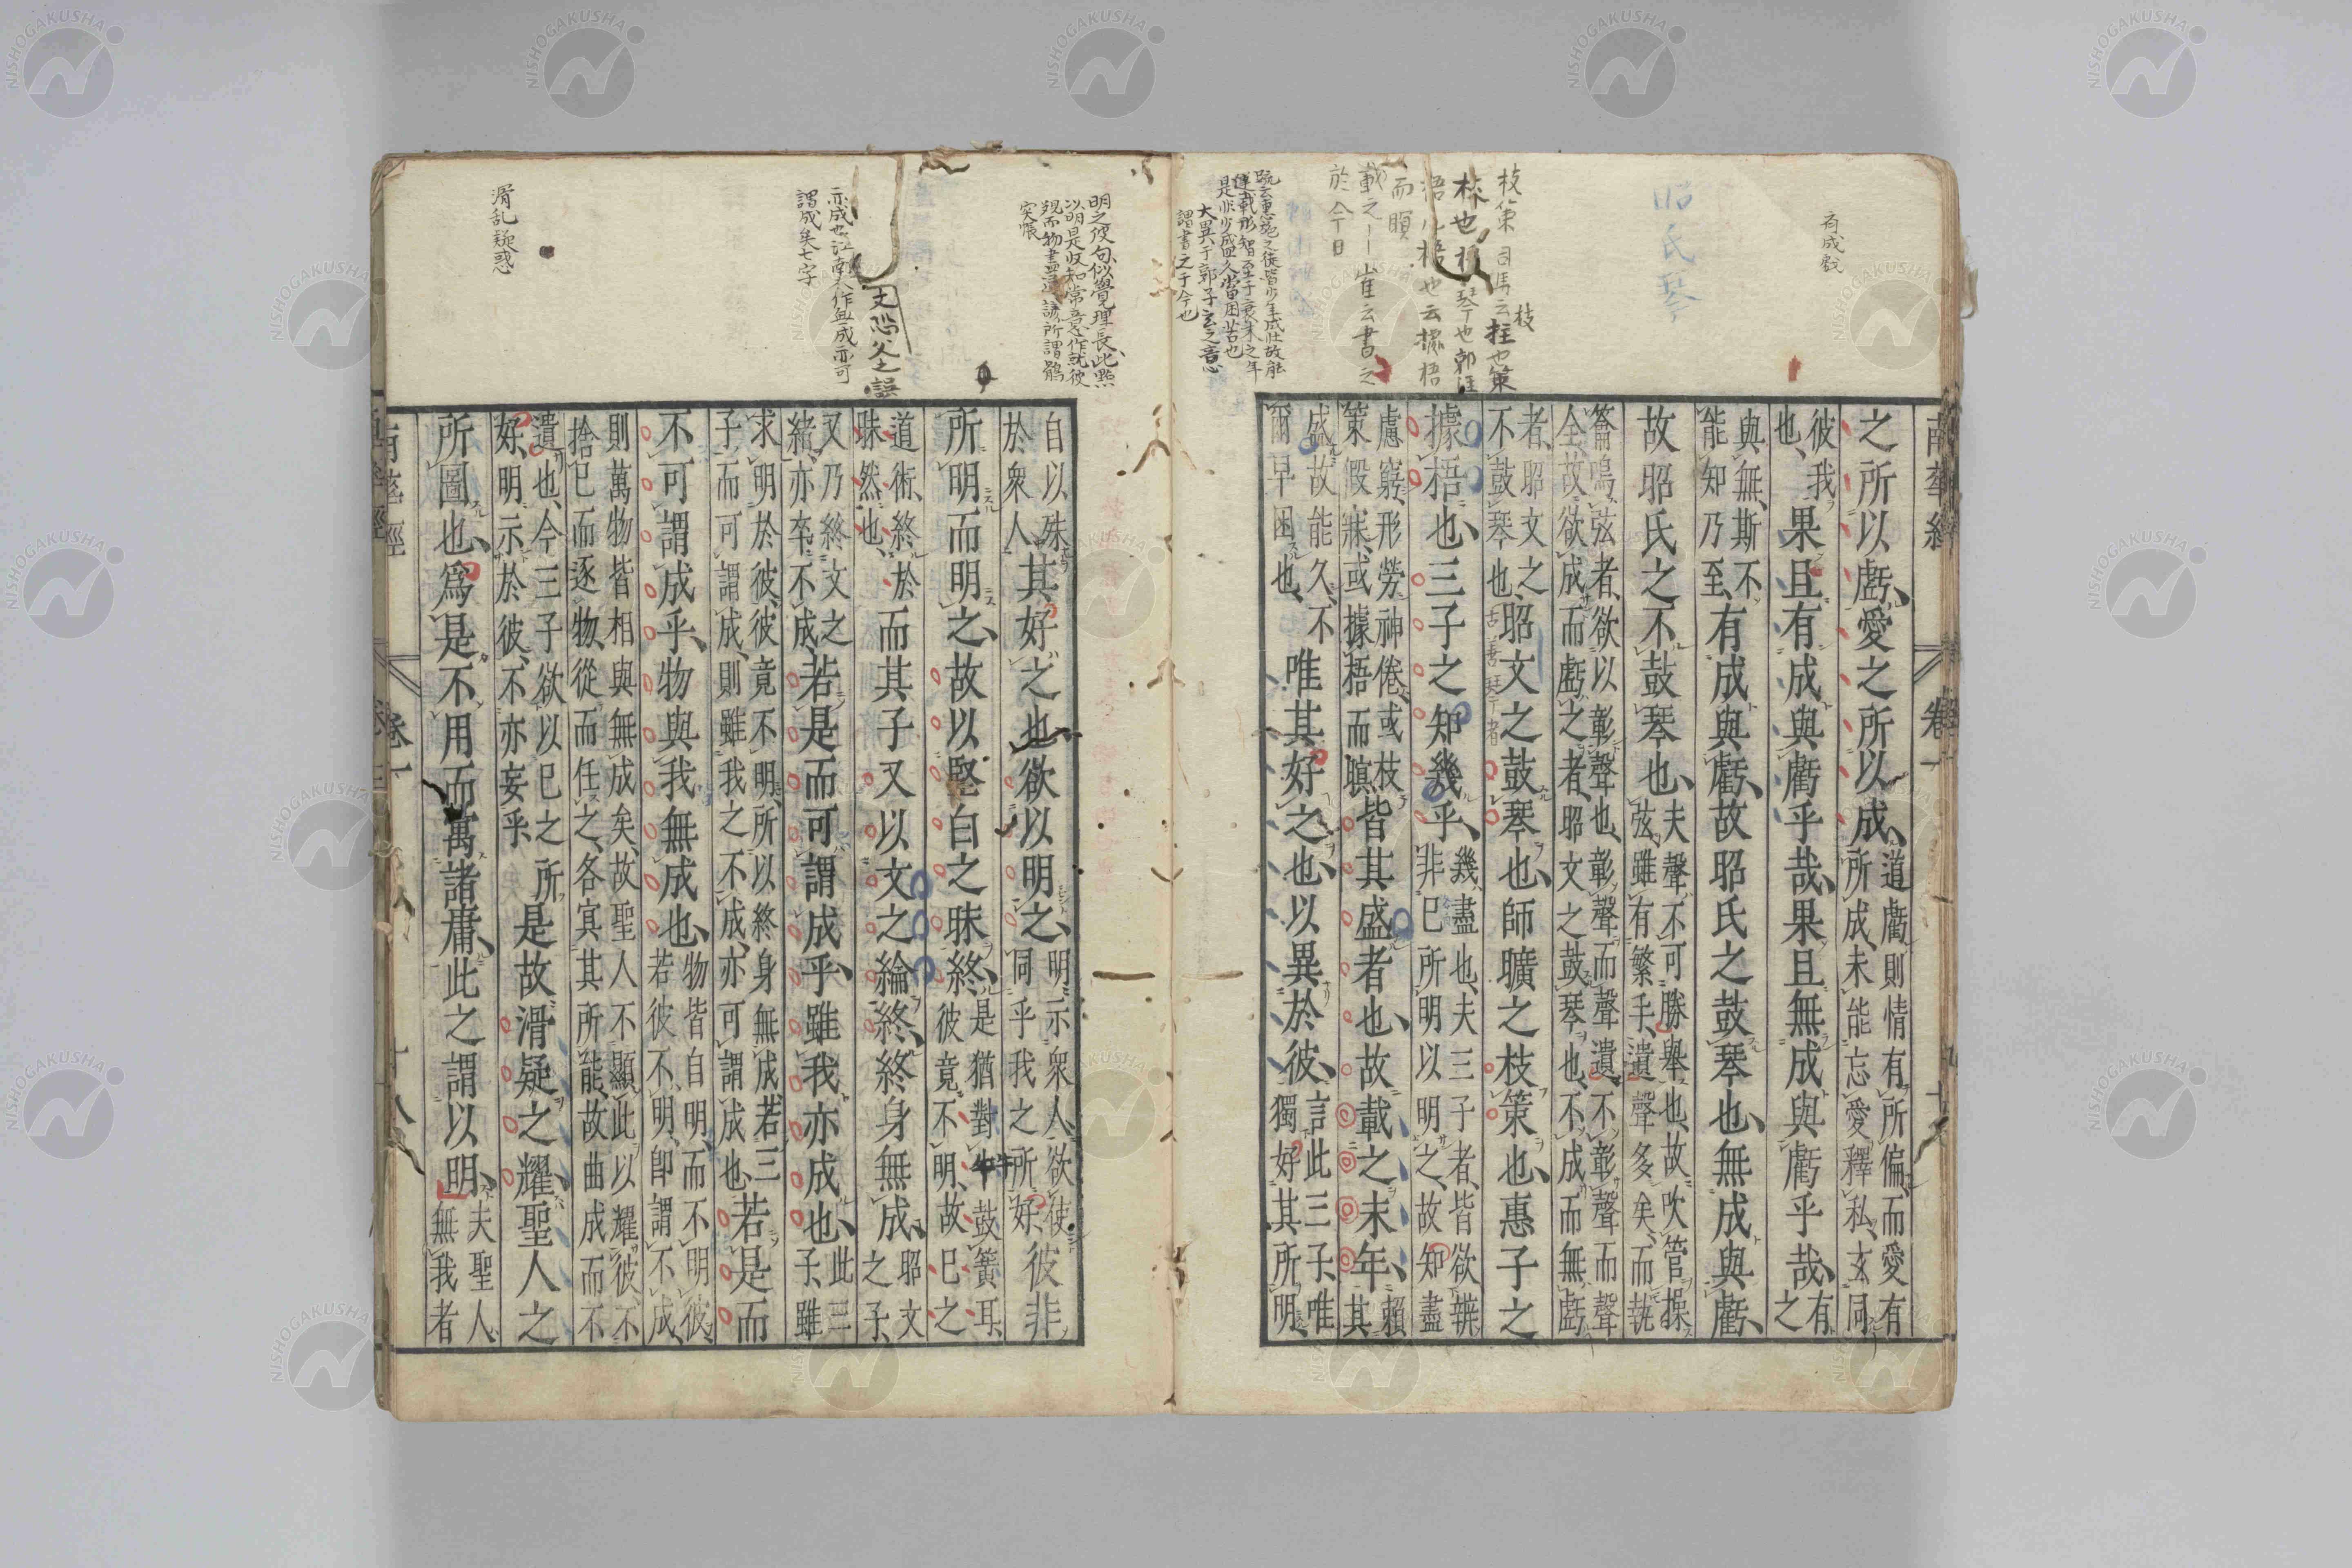 有成虧
昭氏琴
枝策司馬云
於今日
滑乱疑惑
南華經 卷一 十
之所以虧、愛之所以成、道虧則情有所偏、而愛有
所成、未能忘愛釋私、玄同
彼我
也、果且有成與虧乎哉、果且無成與虧乎哉、有
之
與無、斯不
能知乃至、有成與虧、故昭氏之鼓琴也、無成與虧、
故昭氏之不鼓琴也、夫聲不可勝舉也、故吹管操
弦、雖有繁手、遺聲多矣、而執
籥鳴弦者、欲以彰聲也、彰聲而聲遺、不彰聲而聲
全、故欲成而虧之者、昭文之鼓琴也、不成而無虧
者、昭文之
不鼓琴也、昭文之鼓琴也、師曠之枝策也、惠子之
古善琴者
據梧也、三子之知幾乎、幾、盡也、夫三子者、皆欲辨
非己所明以明之、故知盡
慮窮、形勞神倦、或枝
策假寐、或據梧而瞑、皆其盛者也、故載之末年、賴
其
盛、故能久、不
爾早困也、唯其好之也、以異於彼、言此三子、唯
獨好其所明、
自以殊
於衆人、其好之也、欲以明之、明示衆人、欲使
同乎我之所好、彼非
所明而明之、故以堅白之昧終、是猶對牛鼓簧耳、
彼竟不明、故己之
道術、終於
昧然也、而其子又以文之綸終、終身無成、昭文
之子、
又乃終文之
緒、亦卒不成、若是而可謂成乎、雖我亦成也、此三
子、雖
求明於彼、彼竟不明、所以終身無成、若三
子而可謂成、則雖我之不成、亦可謂成也、若是而
不可謂成乎、物與我無成也、物皆自明、而不明彼、
若彼不明、即謂不成、
則萬物皆相與無成矣、故聖人不顯此以耀彼、不
捨己而逐物、從而任之、各冥其所能、故曲成而不
遺也、今三子欲以己之所
好、明示於彼、不亦妄乎、是故滑疑之耀、聖人之
所圖也、爲是不用而寓諸庸、此之謂以明、夫聖人、
無我者
南華經 卷一
NISHOGAKUSHA